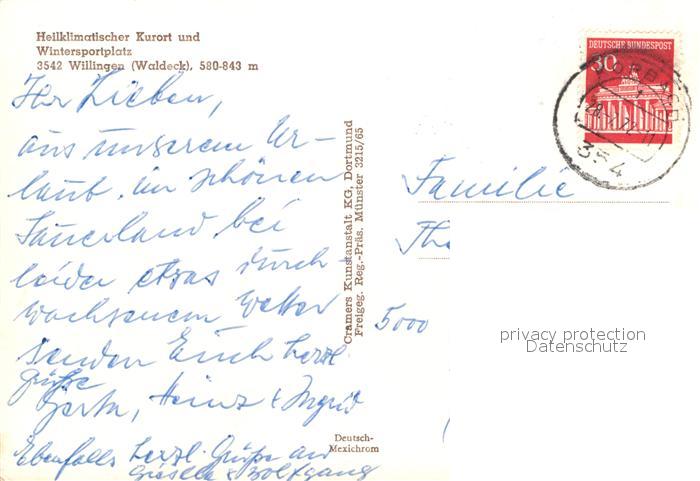 Heilklimatischer Kurort und
Wintersportplatz
3542 Willingen (Waldeck), 580-843 m
Ihr Lieben,
aus unserem Ur-
laub im schönen
Sauerland bei
leider etwas durch-
wachsenem Wetter
senden Euch herzl.
Grüße
Heinz & Ingrid
Ebenfalls herzl. Grüße an
Gisela & Wolfgang
Cramers Kunstanstalt KG, Dortmund
Freigeg. Reg.-Präs. Münster 3215/65
Deutsch-
Mexichrom
DEUTSCHE BUNDESPOST
30
KORBACH
354
Familie
5000
privacy protection
Datenschutz